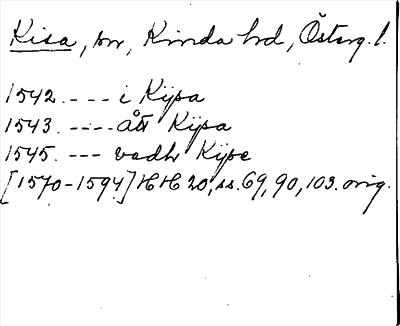 Kisa, sn, Kinda hd, Österg. l.
1542. --- i Kijsa
1543. ---- att Kijsa
1545. --- vedh Kijse
[1570-1594] HH 20, ss. 69, 90, 103. orig.